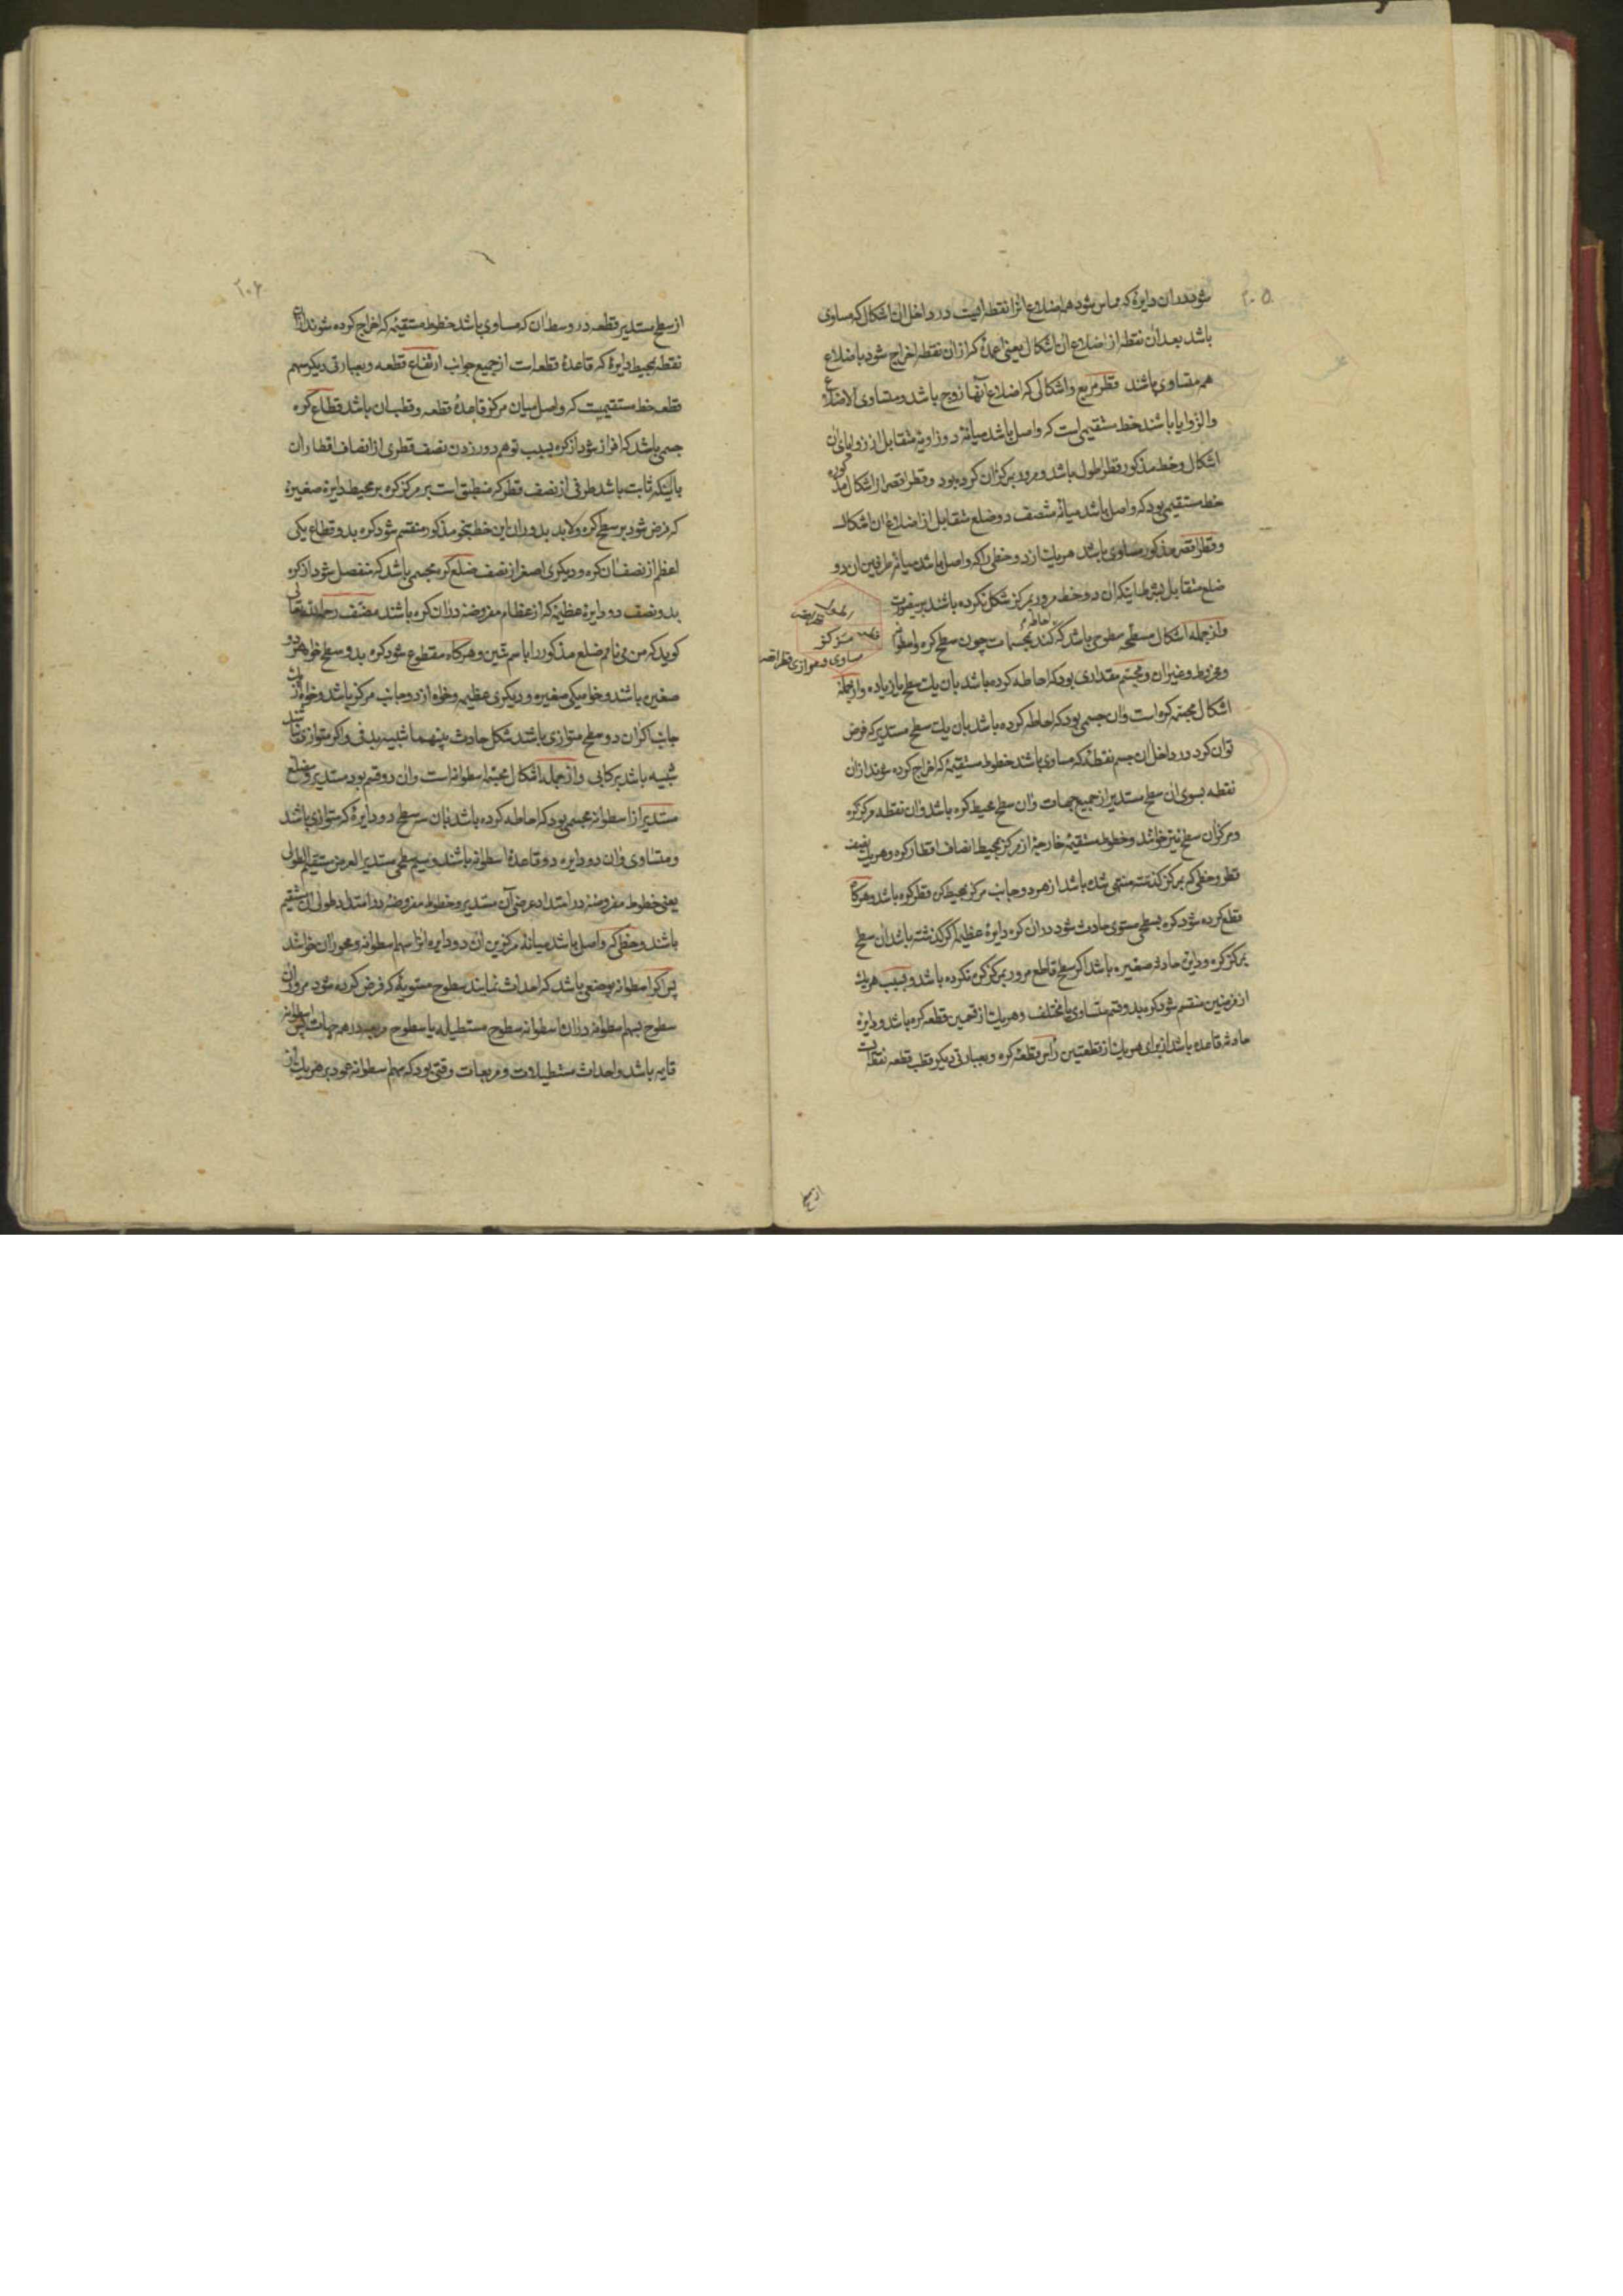 ۲۰۵
شود در ان دایرهٔ که مماس شود همه اضلاع انرا نقطه ایست در داخل ان اشکال که مساوی
باشد بعد ان نقطه از اضلاع ان اشکال یعنی اعمدهٔ که از ان نقطه اخراج شود باضلاع
همه متساوی باشند قطر مربع و اشکالی که اضلاع آنها زوج باشد و متساوی الاضلاع
والزوایا باشند خط مستقیمی است که واصل باشد میانهٔ دو زاویهٔ متقابل از زوایای ان
اشکال و خط مذکور قطر اطول باشد و مرور بمرکز ان کرده بود و قطر اقصر از اشکال مذکوره
خط مستقیمی بود که واصل باشد میانهٔ منتصف دو ضلع متقابل از اضلاع ان اشکال
و قطر اقصر مذکور مساوی باشد هریك از دو خطی را که واصل باشد میانهٔ طرفین ان دو
ضلع متقابل بشرط اینکه ان دو خط مرور بمرکز شکل نکرده باشند برینصورت
مرکز
مساوی و موازی قطر اقصر
و از جمله اشکال مسطحه سطوحی باشد که احاطه کنند بمجسمات چون سطح کره و اسطوانه
و مخروط و غیر ان و مجسم مقداری بود که احاطه کرده باشد بان یك سطح یا زیاده و از جمله
اشکال مجسمه کره است و ان جسمی بود که احاطه کرده باشد بان یك سطح مستدیر که فرض
توان کرد در داخل ان جسم نقطهٔ که مساوی باشد خطوط مستقیمهٔ که اخراج کرده شوند از ان
نقطه بسوی ان سطح مستدیر از جمیع جهات و ان سطح محیط کره باشد و ان نقطه مرکز کره
و مرکز ان سطح نیز خوانند و خطوط مستقیمهٔ خارجهٔ از مرکز بمحیط انصاف اقطار کره و هریك نصف
قطر و خطی که بمرکز کذشته منتهی شده باشد از هر دو جانب مرکز بمحیط کره قطر کره باشد و هرکاه
قطع کرده شود کره بسطحی مستوی حادث شود در ان کره دایرهٔ عظیمه اکر کذشته باشد ان سطح
بمرکز کره و دایرهٔ حادثه صغیره باشد اکر سطح قاطع مرور بمرکز کره نکرده باشد و بسبب هریك
از فرضین منقسم شود کره بدو قسم متساوی یا مختلف و هریك از قسمین قطعه کره باشد و دایرهٔ
حادثه قاعده باشد از برای هریك از قطعتین رأس قطعهٔ کره و بعبارتی دیکر قطب قطعه نقطه‌ایست
از سطح
۲۰۶
از سطح مستدیر قطعه در وسط ان که مساوی باشد خطوط مستقیمهٔ که اخراج کرده شوند از ان
نقطه بمحیط دایرهٔ که قاعدهٔ قطعه است از جمیع جوانب ارتفاع قطعه و بعبارتی دیکر سهم
قطعه خط مستقیمیست که واصل میان مرکز قاعدهٔ قطعه و قطب ان باشد قطاع کره
جسمی باشد که افراز شود از کره بسبب توهم دور زدن نصف قطری از انصاف اقطار ان
باینکه ثابت باشد طرفی از نصف قطر که منطبق است بر مرکز کره بر محیط دایرهٔ صغیرهٔ
که فرض شود بر سطح کره و لابد بدوران این خط بنحو مذکور منقسم شود کره بدو قطاع یکی
اعظم از نصف ان کره و دیکری اصغر از نصف ضلع کره مجسمی باشد که منفصل شود از کره
بدو نصف دو دایرهٔ عظیمهٔ که از عظام مفروضه در ان کره باشند مصنف رحمه الله تعالی
کوید که من می نامم ضلع مذکور را باسم شین و هرکاه مقطوع شود کره بدو سطح خواه هر دو
صغیره باشند و خواه یکی صغیره و دیکری عظیمه و خواه از دو جانب مرکز باشد و خواه از یك
جانب اکر ان دو سطح متوازی باشند شکل حادث بینهما شبیه بدفی و اکر متوازی نباشند
شبیه باشد برکابی و از جمله اشکال مجسمه اسطوانه است و ان دو قسم بود مستدیر و مضلع
مستدیر از اسطوانه مجسمی بود که احاطه کرده باشد بان سه سطح دو دایرهٔ که متوازی باشد
و متساوی و ان دو دایره دو قاعدهٔ اسطوانه باشند و سیم سطحی مستدیر العرض مستقیم الطول
یعنی خطوط مفروضهٔ در امتداد عرضی آن مستدیر و خطوط مفروضهٔ در امتداد طولی ان مستقیم
باشند و خطی که واصل باشد میانهٔ مرکزین ان دو دایره انرا سهم اسطوانه و محور ان خوانند
پس اکر اسطوانه بوضعی باشد که احداث نمایند سطوح مستویهٔ که فرض کرده شود مرور ان
سطوح بسهم اسطوانه در ان اسطوانه سطوح مستطیله یا سطوح مربعه در همه جهات پس اسطوانه
قایمه باشد و احداث مستطیلات و مربعات وقتی بود که سهم اسطوانه عمود بر هریك از